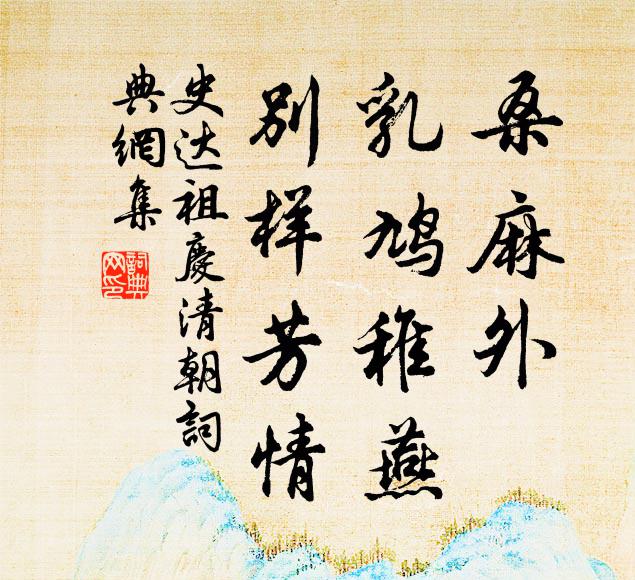 桑麻外
乳鸠稚燕
别样芳情
史达祖慶清朝詞
典網集
詞典
网印